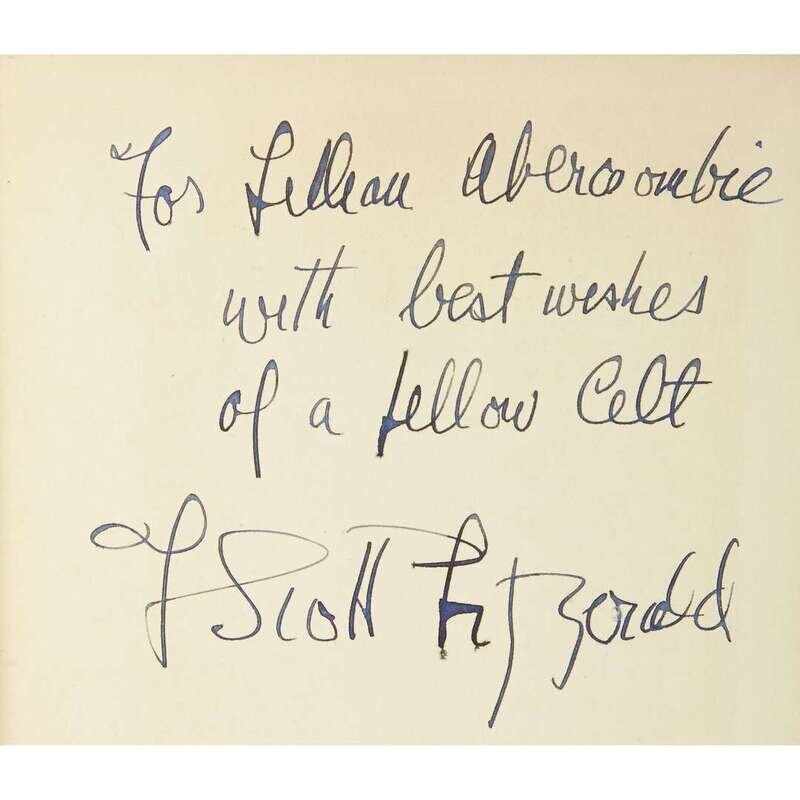 For Lillian Abercrombie
with best wishes
of a fellow Celt
F Scott Fitzgerald